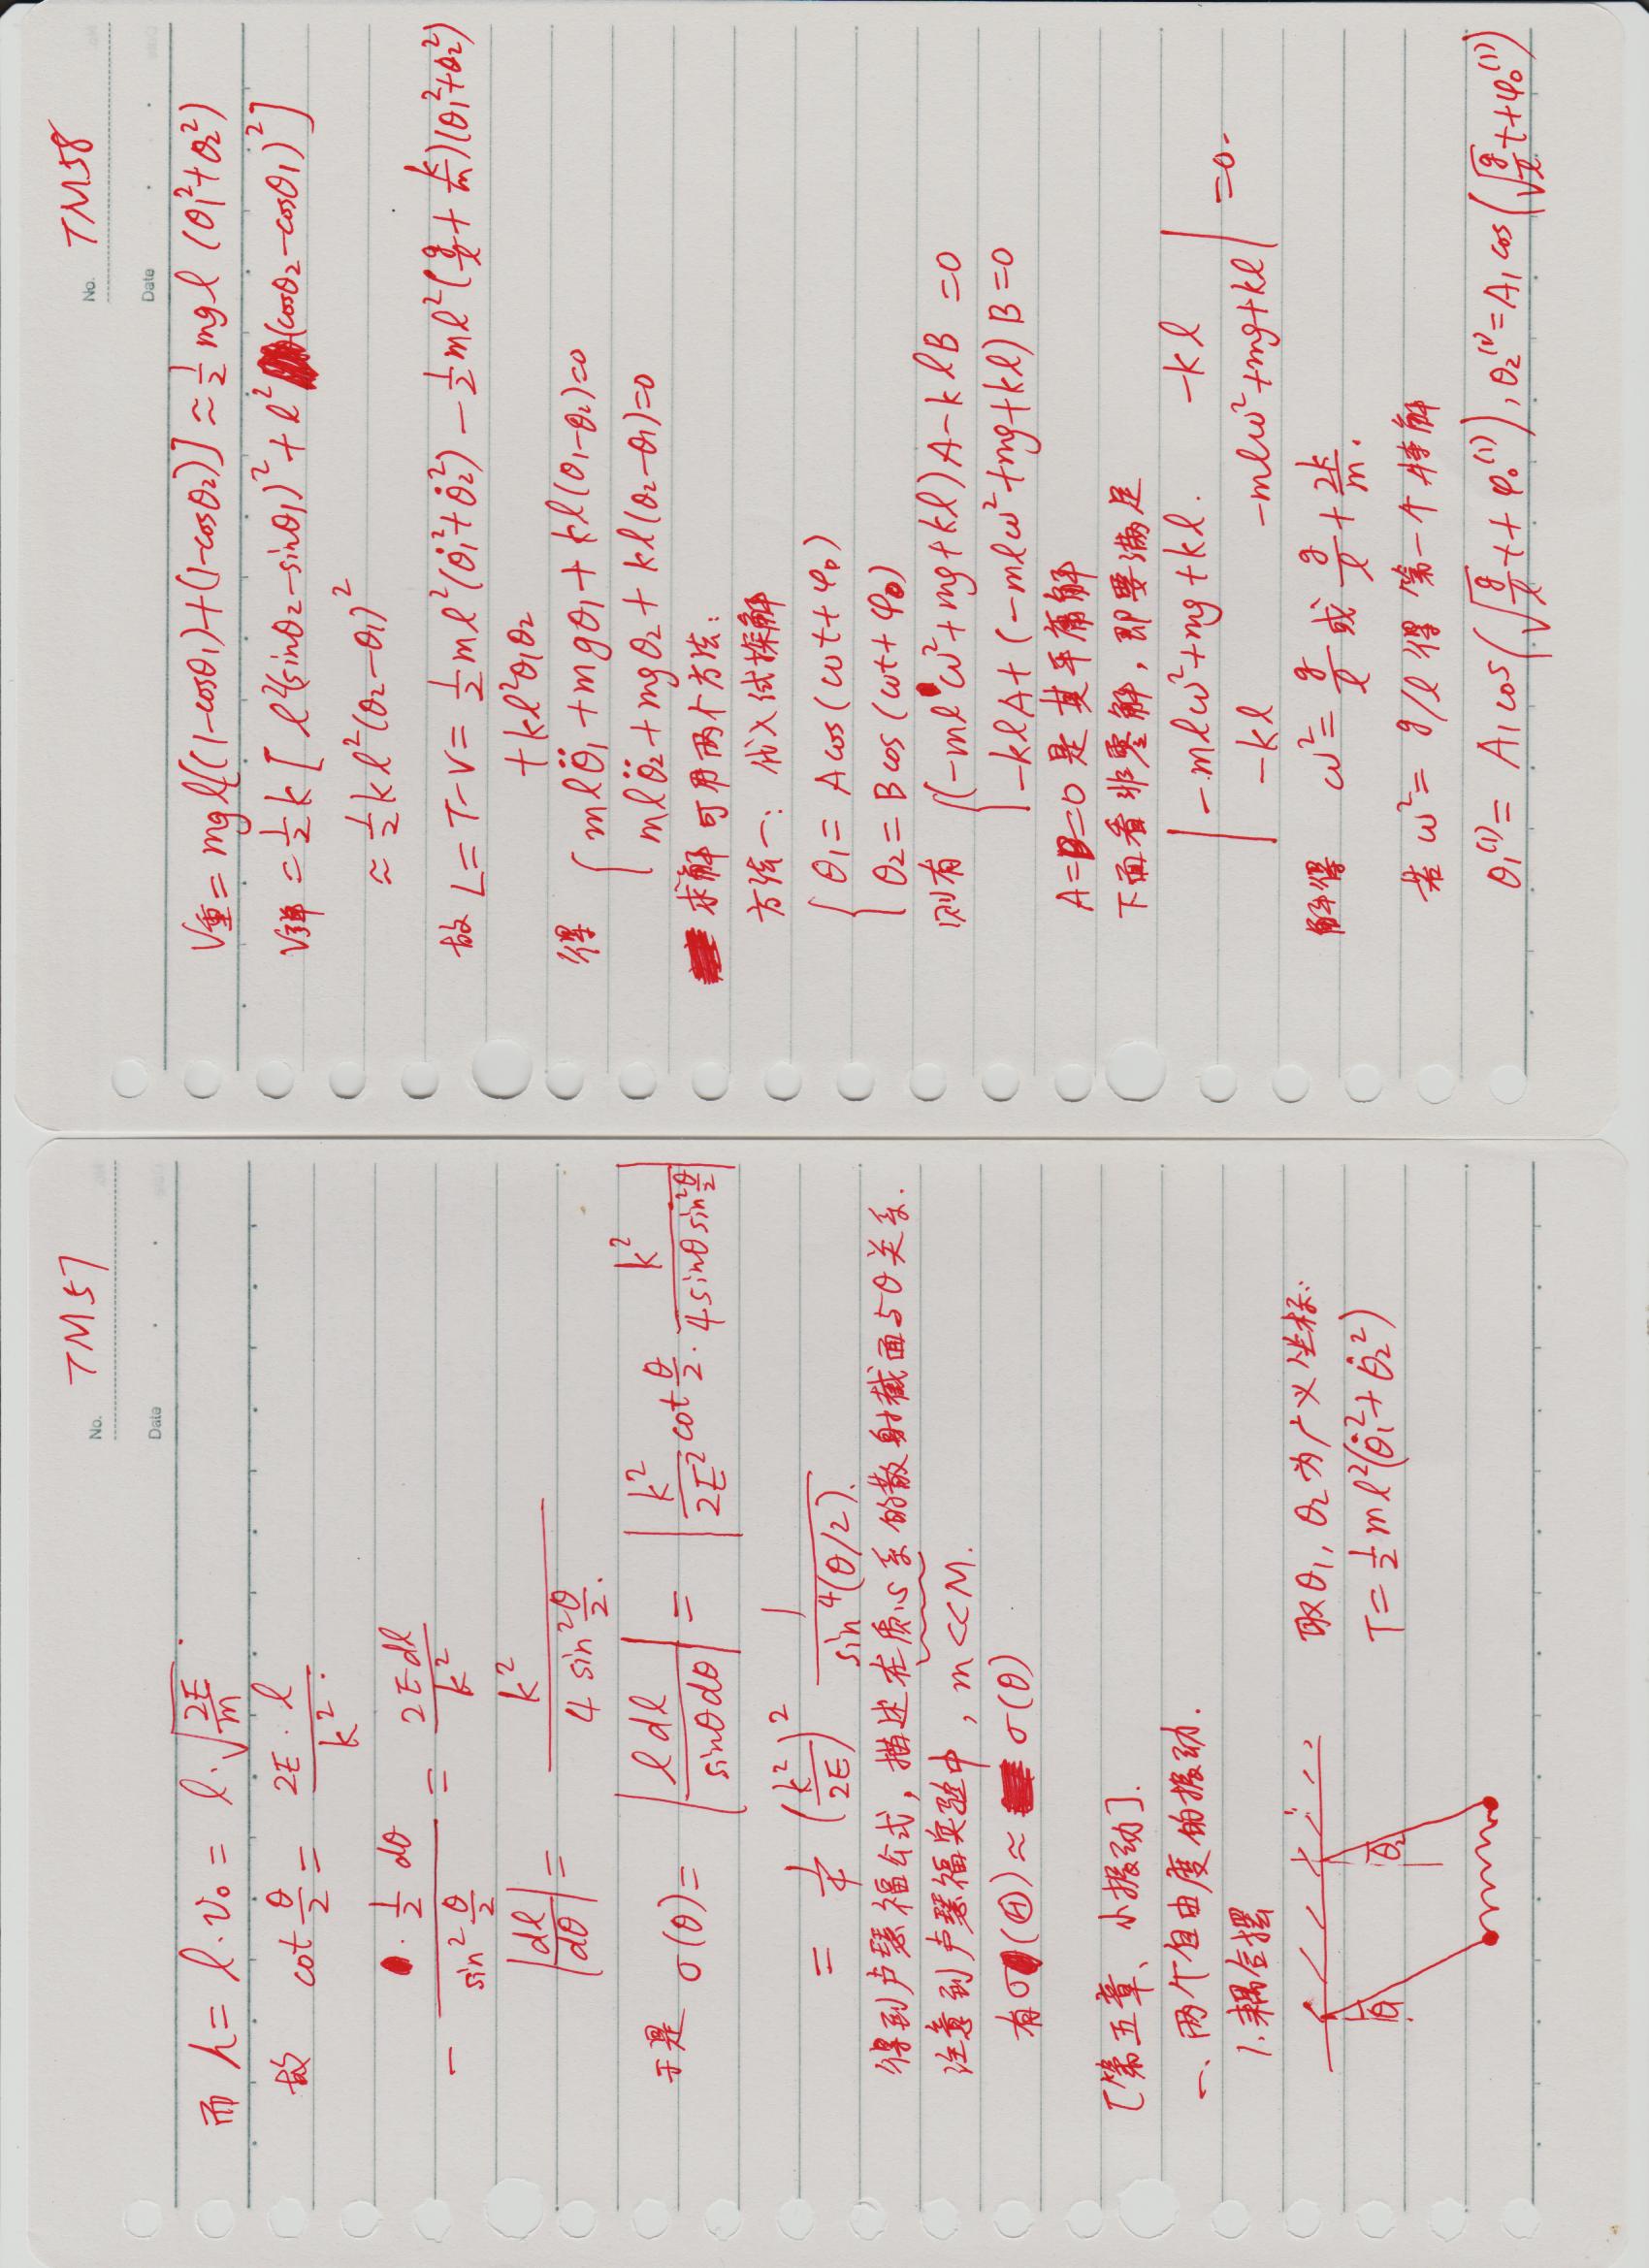 No. TM57
Date
而 h = l·v₀ = l·√(2E/m)
故 cot θ/2 = 2E·l / k²
- (½ dθ) / (sin² θ/2) = 2E dl / k²
|dl/dθ| = k² / (4 sin² θ/2)
于是 σ(θ) = |l dl / (sinθ dθ)| = |k²/(2E²) cot θ/2 · k² / (4 sinθ sin² θ/2)|
= 1/4 (k²/2E)² 1 / sin⁴(θ/2)
得到卢瑟福公式，描述在质心系的散射截面与θ关系.
注意到卢瑟福实验中，m<<M.
有σ(Θ)≈ σ(θ)
[第五章、小振动].
一、两个自由度的振动.
1.耦合摆
θ₁ θ₂
取θ₁, θ₂为广义坐标:
T = ½ml²(θ̇₁²+θ̇₂²)
No. TM58
Date
V重 = mgl[(1-cosθ₁)+(1-cosθ₂)] ≈ ½mgl (θ₁²+θ₂²)
V弹 = ½k [l²(sinθ₂-sinθ₁)² + l²(cosθ₂-cosθ₁)²]
≈ ½kl²(θ₂-θ₁)²
故 L = T-V = ½ml²(θ̇₁²+θ̇₂²) - ½ml²(g/l + k/m)(θ₁²+θ₂²)
+kl²θ₁θ₂
得 { mlθ̈₁+mgθ₁+kl(θ₁-θ₂)=0
mlθ̈₂+mgθ₂+kl(θ₂-θ₁)=0
求解可用两个方法:
方法一: 代入试探解
{ θ₁ = Acos(ωt+φ₀)
θ₂ = Bcos(ωt+φ₀)
则有 { (-mlω²+mg+kl)A-klB = 0
-klA+(-mlω²+mg+kl)B=0
A=B=0是其平庸解
下面看非零解，即要满足
| -mlω²+mg+kl. -kl |
| -kl -mlω²+mg+kl | =0.
解得 ω² = g/l 或 g/l + 2k/m.
若 ω² = g/l 得第一个特解
θ₁⁽¹⁾ = A₁cos(√(g/l) t+φ₀⁽¹⁾), θ₂⁽¹⁾ = A₁cos(√(g/l) t+φ₀⁽¹⁾)